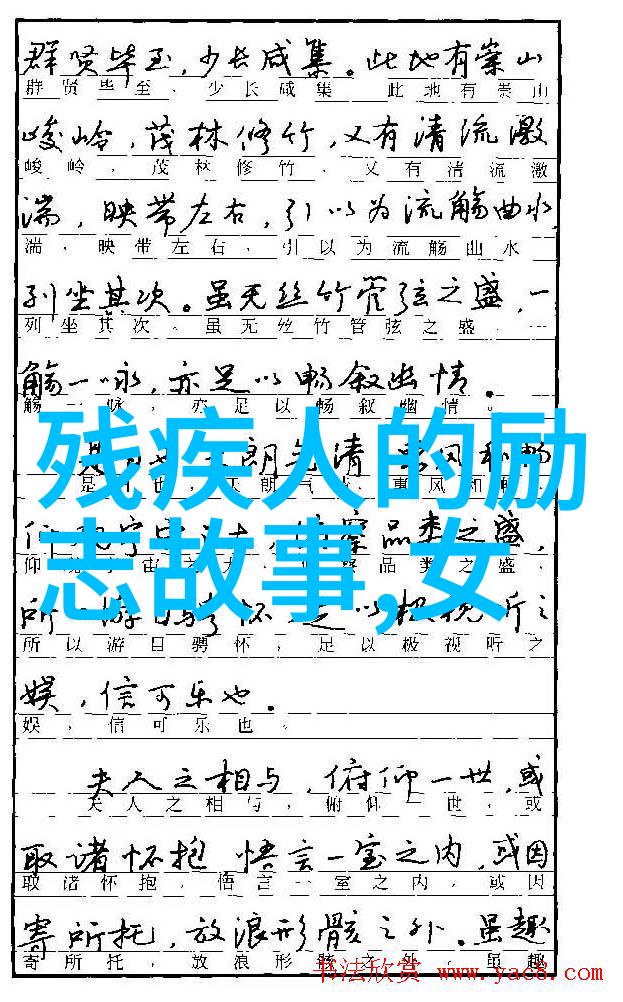 群贤毕至,少长咸集。此地有崇山
群贤毕至,少长咸集。此地有崇山
峻岭,茂林修竹,又有清流激
峻岭,茂林修竹,又有清流激
湍,映带左右,引以为流觞曲水,
湍,映带左右,引以为流觞曲水
列坐其次。虽无丝竹管弦之盛,一
列坐其次。虽无丝竹管弦之盛,一
觞一咏,亦足以畅叙幽情。
觞一咏,亦足以畅叙幽情。
残疾人的励
志故事,女
是 也, 朗气清
是 也,天朗气 惠风和
仰 宇 察品类之盛,
仰 宙 品类之盛,
所 游 怀 足以极视听之
所以游目骋怀,足以极视听之
娱,信可乐也。
娱,信可乐也。
夫人之相与,俯仰一世,或
夫人之相与,俯仰一世,或
取诸怀抱 悟言一室之内,或因
取诸怀抱,悟言一室之内,或因
寄所托,放浪形骸之外。虽趣
寄所托,放浪形骸之外。虽趣
书法欣赏 www.yac8.com